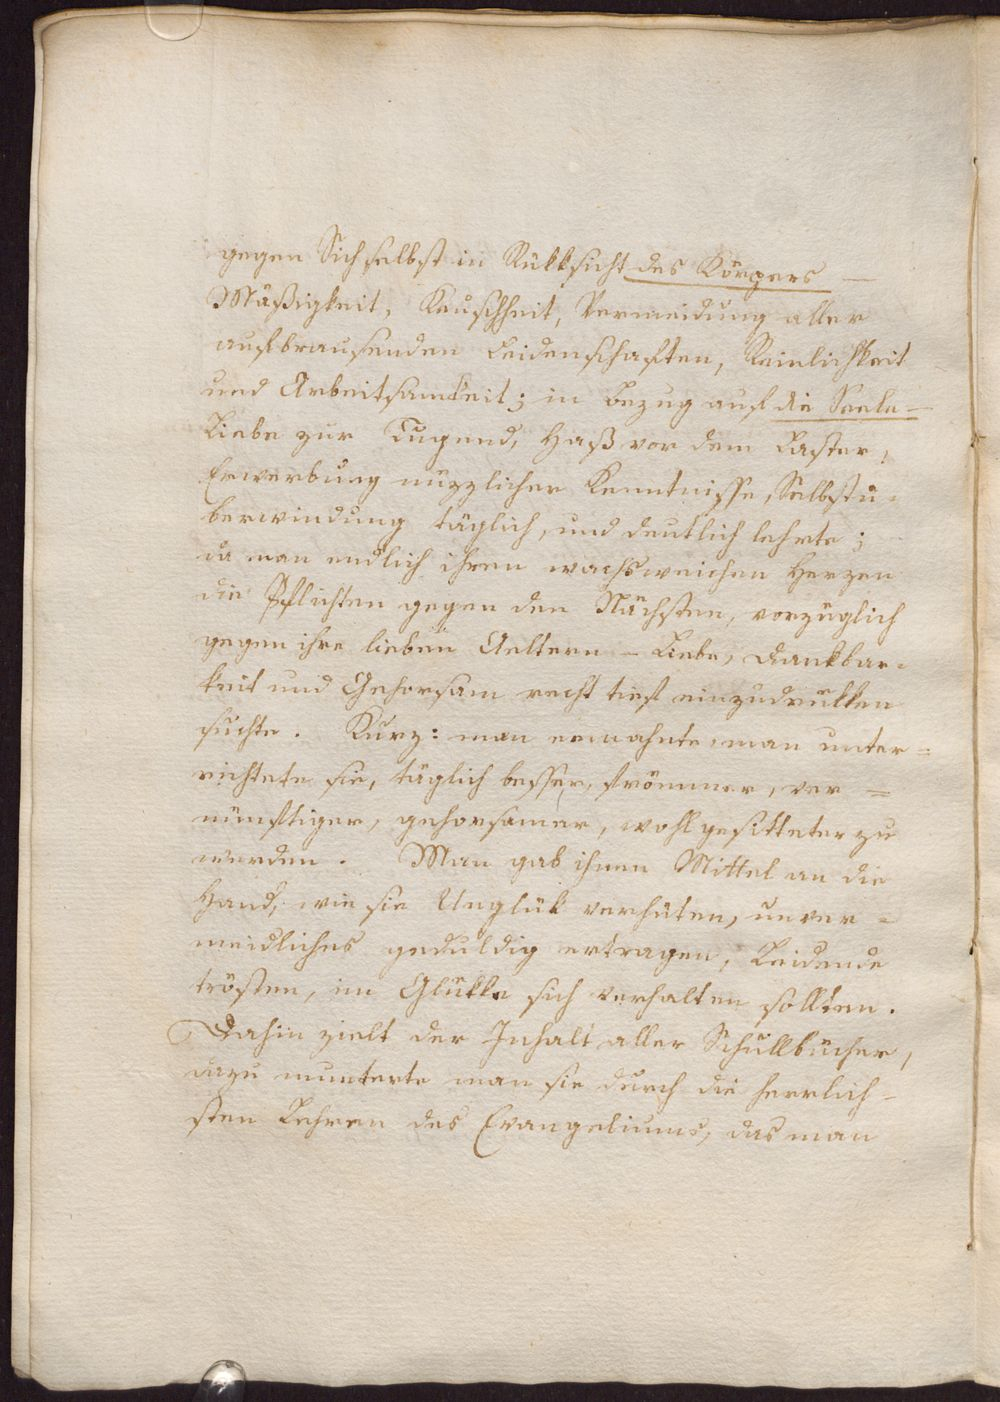 gegen Sich selbst in Rükksicht des Körpers —
Mäßigkeit, Keuschheit, Vermeidung aller
aufbrausenden Leidenschaften, Reinlichkeit
und Arbeitsamkeit; in Bezug auf die Seele —
Liebe zur Tugend, Haß vor dem Laster,
Erwerbung nüzzlicher Kenntnisse, Selbstü-
berwindung täglich, und deutlich lehrte;
da man endlich ihren wachsweichen Herzen
die Pflichten gegen den Nächsten, vorzüglich
gegen ihre lieben Aeltern – Liebe, Dankbar=
keit und Gehorsam recht tief einzudrükken
suchte. Kurz: man ermahnte, man unter=
richtete sie, täglich besser, frömmer, ver=
nünftiger, gehorsamer, wohlgesitteter zu
werden. Man gab ihnen Mittel an die
Hand, wie sie Unglük verhüten, unver=
meidliches geduldig ertragen, Leidende
trösten, im Glükke sich verhalten sollten.
Dahin zielt der Inhalt aller Schullbücher,
dazu munterte man sie durch die herrlich-
sten Lehren des Evangeliums, das man